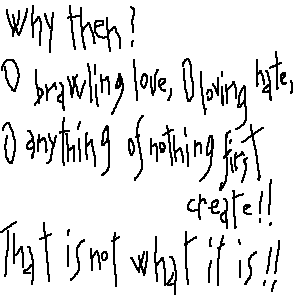 Why then?
O brawling love, O loving hate,
O anything of nothing first
create!!
That is not what it is!!